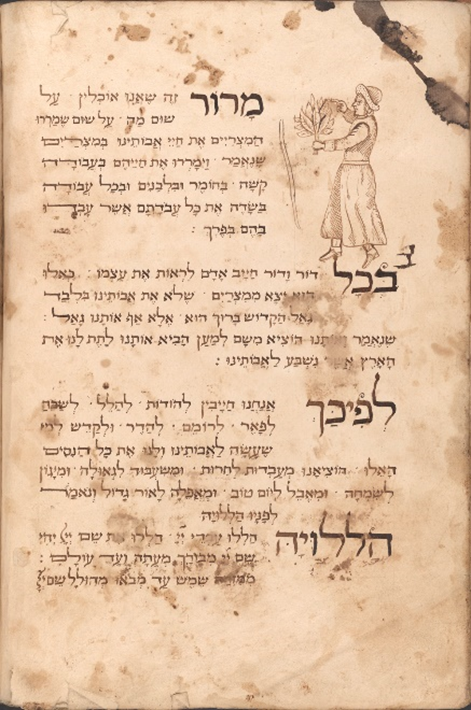 מָרוֹר זֶה שֶׁאָנוּ אוֹכְלִין עַל
שׁוּם מָה עַל שׁוּם שֶׁמֵּרְרוּ
הַמִּצְרִיִּים אֶת חַיֵּי אֲבוֹתֵינוּ בְּמִצְרַיִם
שֶׁנֶּאֱמַר וַיְמָרְרוּ אֶת חַיֵּיהֶם בַּעֲבוֹדָה
קָשָׁה בְּחוֹמֶר וּבִלְבֵנִים וּבְכָל עֲבוֹדָה
בַּשָּׂדֶה אֵת כָּל עֲבֹדָתָם אֲשֶׁר עָבְדוּ
בָהֶם בְּפָרֶךְ :
בְּכָל דּוֹר וָדוֹר חַיָּיב אָדָם לִרְאוֹת אֶת עַצְמוֹ כְּאִלּוּ
הוּא יָצָא מִמִּצְרַיִם שֶׁלֹּא אֶת אֲבוֹתֵינוּ בִּלְבַד
גָּאַל הַקָּדוֹשׁ בָּרוּךְ הוּא אֶלָּא אַף אוֹתָנוּ גָּאַל :
שֶׁנֶּאֱמַר וְאוֹתָנוּ הוֹצִיא מִשָּׁם לְמַעַן הָבִיא אוֹתָנוּ לָתֶת לָנוּ אֶת
הָאָרֶץ אֲשֶׁר נִשְׁבַּע לַאֲבוֹתֵינוּ :
לְפִיכָךְ אֲנַחְנוּ חַיָּיבִין לְהוֹדוֹת לְהַלֵּל לְשַׁבֵּחַ
לְפָאֵר לְרוֹמֵם לְהַדֵּר וּלְקַדֵּישׁ לְמִי
שֶׁעָשָׂה לַאֲבוֹתֵינוּ וְלָנוּ אֶת כָּל הַנִּסִּים
הָאֵלּוּ הוֹצִיאָנוּ מֵעַבְדוּת לְחֵרוּת וּמִשִּׁעְבּוּד לִגְאוּלָּה וּמִיָּגוֹן
לְשִׂמְחָה וּמֵאֵבֶל לְיוֹם טוֹב וּמֵאֲפֵלָה לְאוֹר גָּדוֹל וְנֹאמַר
לְפָנָיו הַלְלוּיָהּ
הללויה הַלְלוּ עַבְדֵי יְיָ הַלְלוּ אֶת שֵׁם יְיָ יְהִי
שֵׁם יְיָ מְבוֹרָךְ מֵעַתָּה וְעַד עוֹלָם :
מִמִּזְרַח שֶׁמֶשׁ עַד מְבוֹאוֹ מְהוּלָּל שֵׁם יְיָ